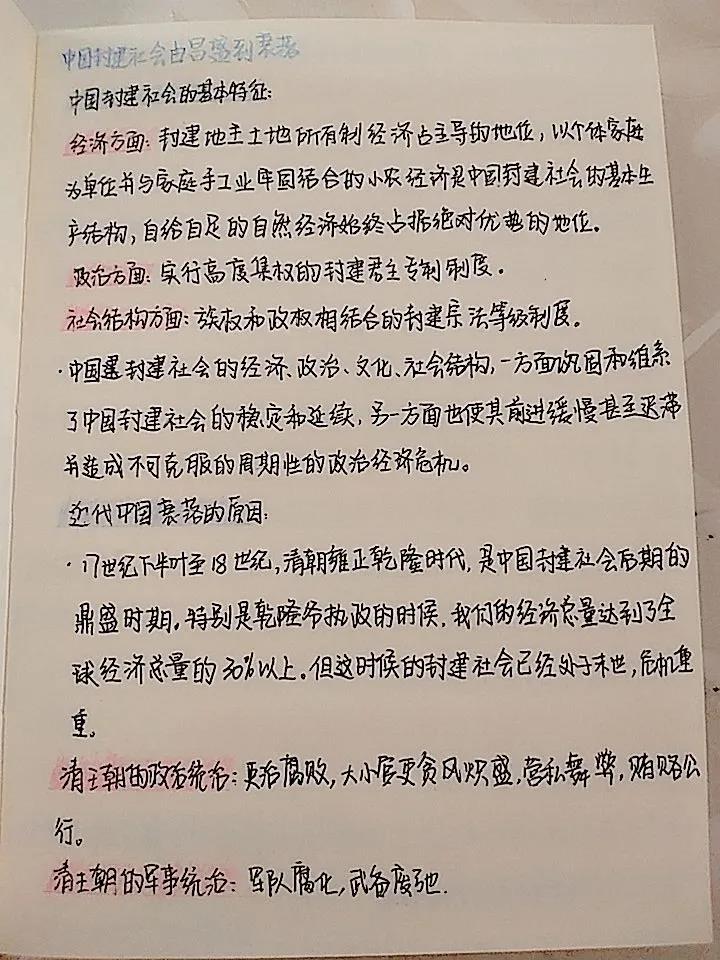 中国封建社会由昌盛到衰落
中国封建社会的基本特征:
经济方面: 封建地主土地所有制经济占主导的地位, 以个体家庭
为单位并与家庭手工业牢固结合的小农经济是中国封建社会的基本生
产结构, 自给自足的自然经济始终占据绝对优势的地位。
政治方面: 实行高度集权的封建君主专制制度。
社会结构方面: 族权和政权相结合的封建宗法等级制度。
·中国封建社会的经济、政治、文化、社会结构, 一方面巩固和维系
了中国封建社会的稳定和延续, 另一方面也使其前进缓慢甚至迟滞
并造成不可克服的周期性的政治经济危机。
近代中国衰落的原因:
·17世纪下半叶至18世纪, 清朝雍正乾隆时代, 是中国封建社会后期的
鼎盛时期。特别是乾隆爷执政的时候, 我们的经济总量达到了全
球经济总量的30%以上。但这时候的封建社会已经处于末世, 危机重
重。
清王朝的政治统治: 吏治腐败, 大小官吏贪风炽盛, 营私舞弊, 贿赂公
行。
清王朝的军事统治: 军队腐化, 武备废弛.